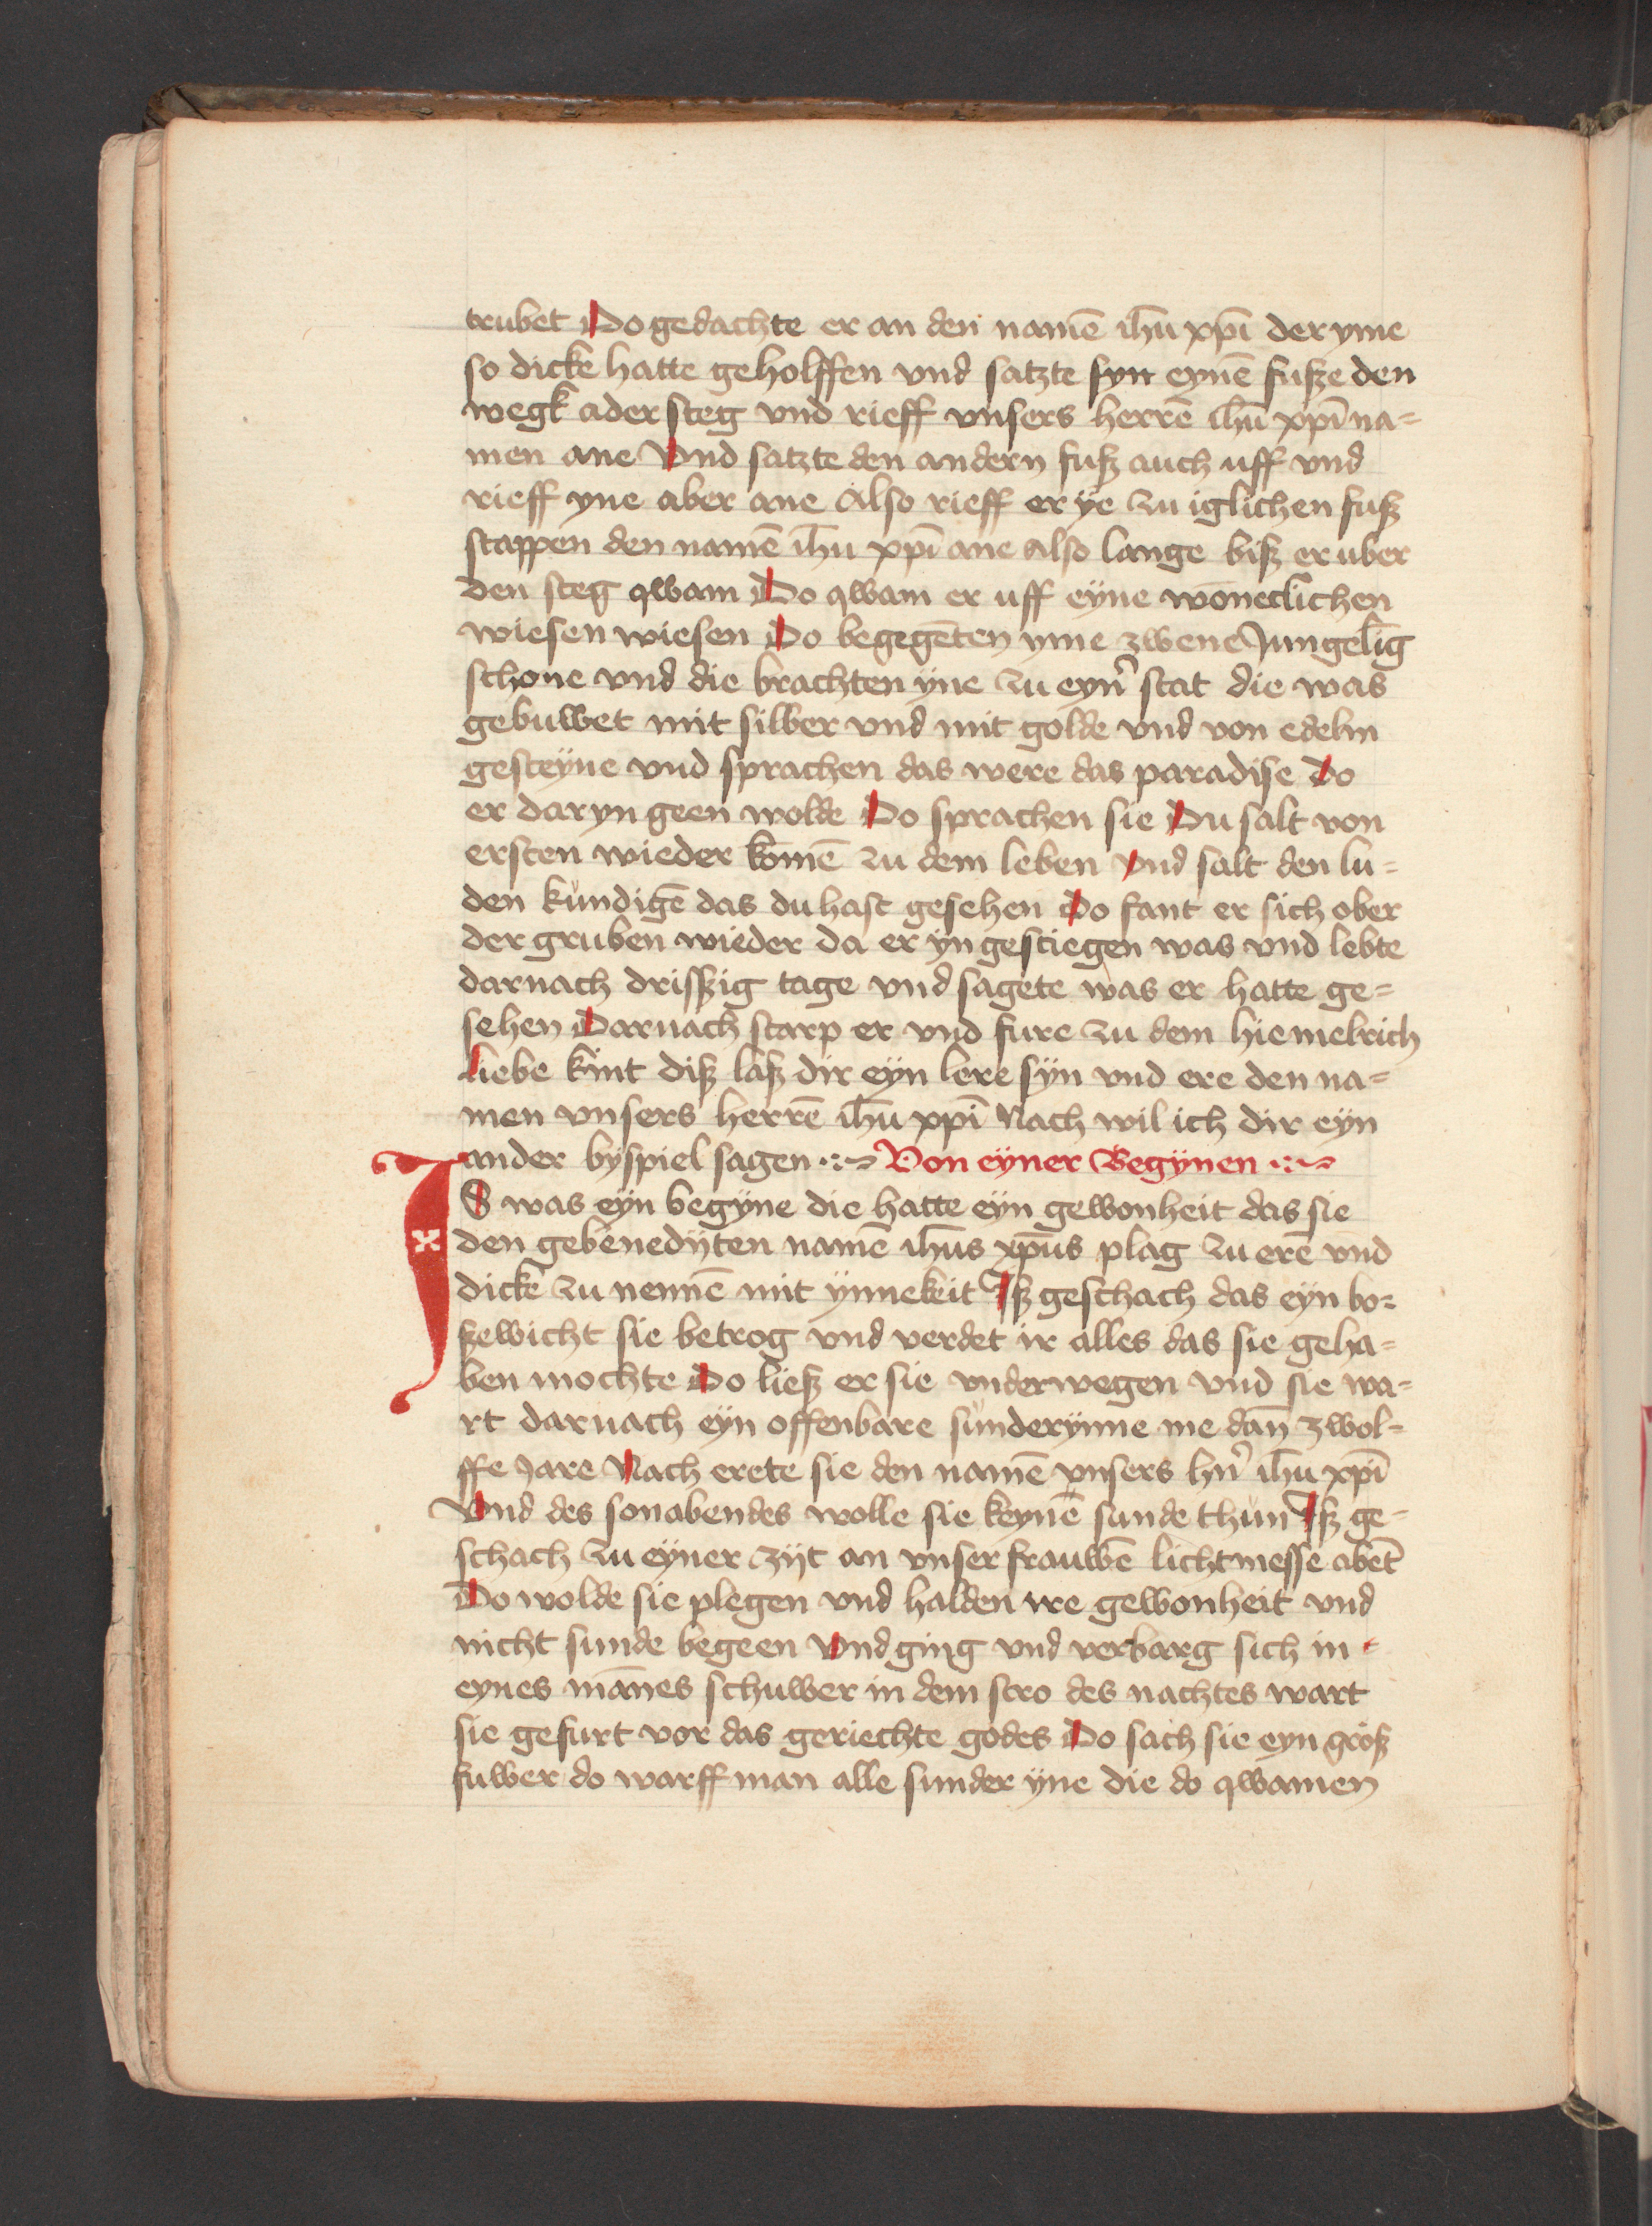 trubet Do gedachte er an den namē ih̄u xp̄i der yme
so dicke hatte geholffen vnd satzte syn eynē fusze den
wegk ader steg vnd rieff vnsers herrē ih̄u xp̄i na=
men ane Vnd satzte den andern fusz auch uff vnd
rieff yne aber ane Also rieff er ye zu iglichen fusz
stappen den namē ih̄u xp̄i ane also lange bisz er uber
den steg qwam Do qwam er uff eyne wōneclichen
wiesen wiesen Do begegēten yme zwene Jungelīg
schone vnd die brachten yne zu eyn̄ stat die was
gebuwet mit silber vnd mit golde vnd von edelm
gesteyne vnd sprachen das were das paradise Do
er daryn geen wolde Do sprachen sie Du salt von
ersten wieder kōmē zu dem leben vnd salt den lu=
den kundigē das du hast gesehen Do fant er sich ober
der gruben wieder da er yn gestiegen was vnd lebte
darnach driszig tage vnd sagete was er hatte ge=
sehen Darnach starp er vnd fure zu dem hiemelrich
liebe kint disz lasz dir eyn lere syn vnd ere den na=
men vnsers herrē ih̄u xp̄i Nach wil ich dir eyn
ander byspiel sagen Von eyner Begynen
IS was eyn begyne die hatte eyn gewonheit das sie
den gebenedyten namē ih̄us xp̄us plag zu erē vnd
dicke zu nennē mit ynnekeit Isz geschach das eyn bo=
szewicht sie betrog vnd verdet ir alles das sie geha=
ben mochte Do liesz er sie vnderwegen vnd sie wa=
rt darnach eyn offenbare sunderynne me dan̄ zwol=
ffe Jare Nach erete sie den namē vnsers hn̄ ih̄u xp̄i
Vnd des sonabendes wolle sie keynē sunde thun Isz ge=
schach zu eyner zyt an vnser frauwē lichtmesse abēt
Do wolde sie plegen vnd halden ire gewonheit vnd
nicht sunde begeen Vnd ging vnd verbarg sich in
eynes mānes schuwer in dem stro des nachtes wart
sie gefurt vor das geriechte godes Do sach sie eyn grosz
fuwer do warff man alle sunder yne die do qwamen